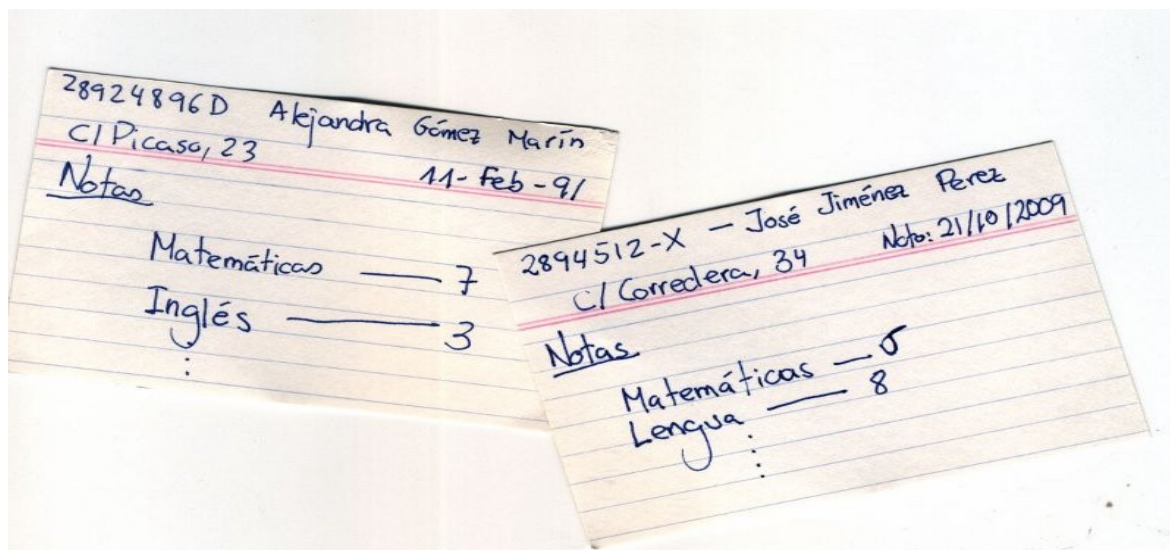 28924896D Alejandra Gómez Marín
C/ Picaso, 23
11-feb-91
Notas
Matemáticas — 7
Inglés — 3
⋮
2894512-X — José Jiménez Perez
C/ Corredera, 34
Nato: 21/10/2009
Notas
Matemáticas — 5
Lengua — 8
⋮